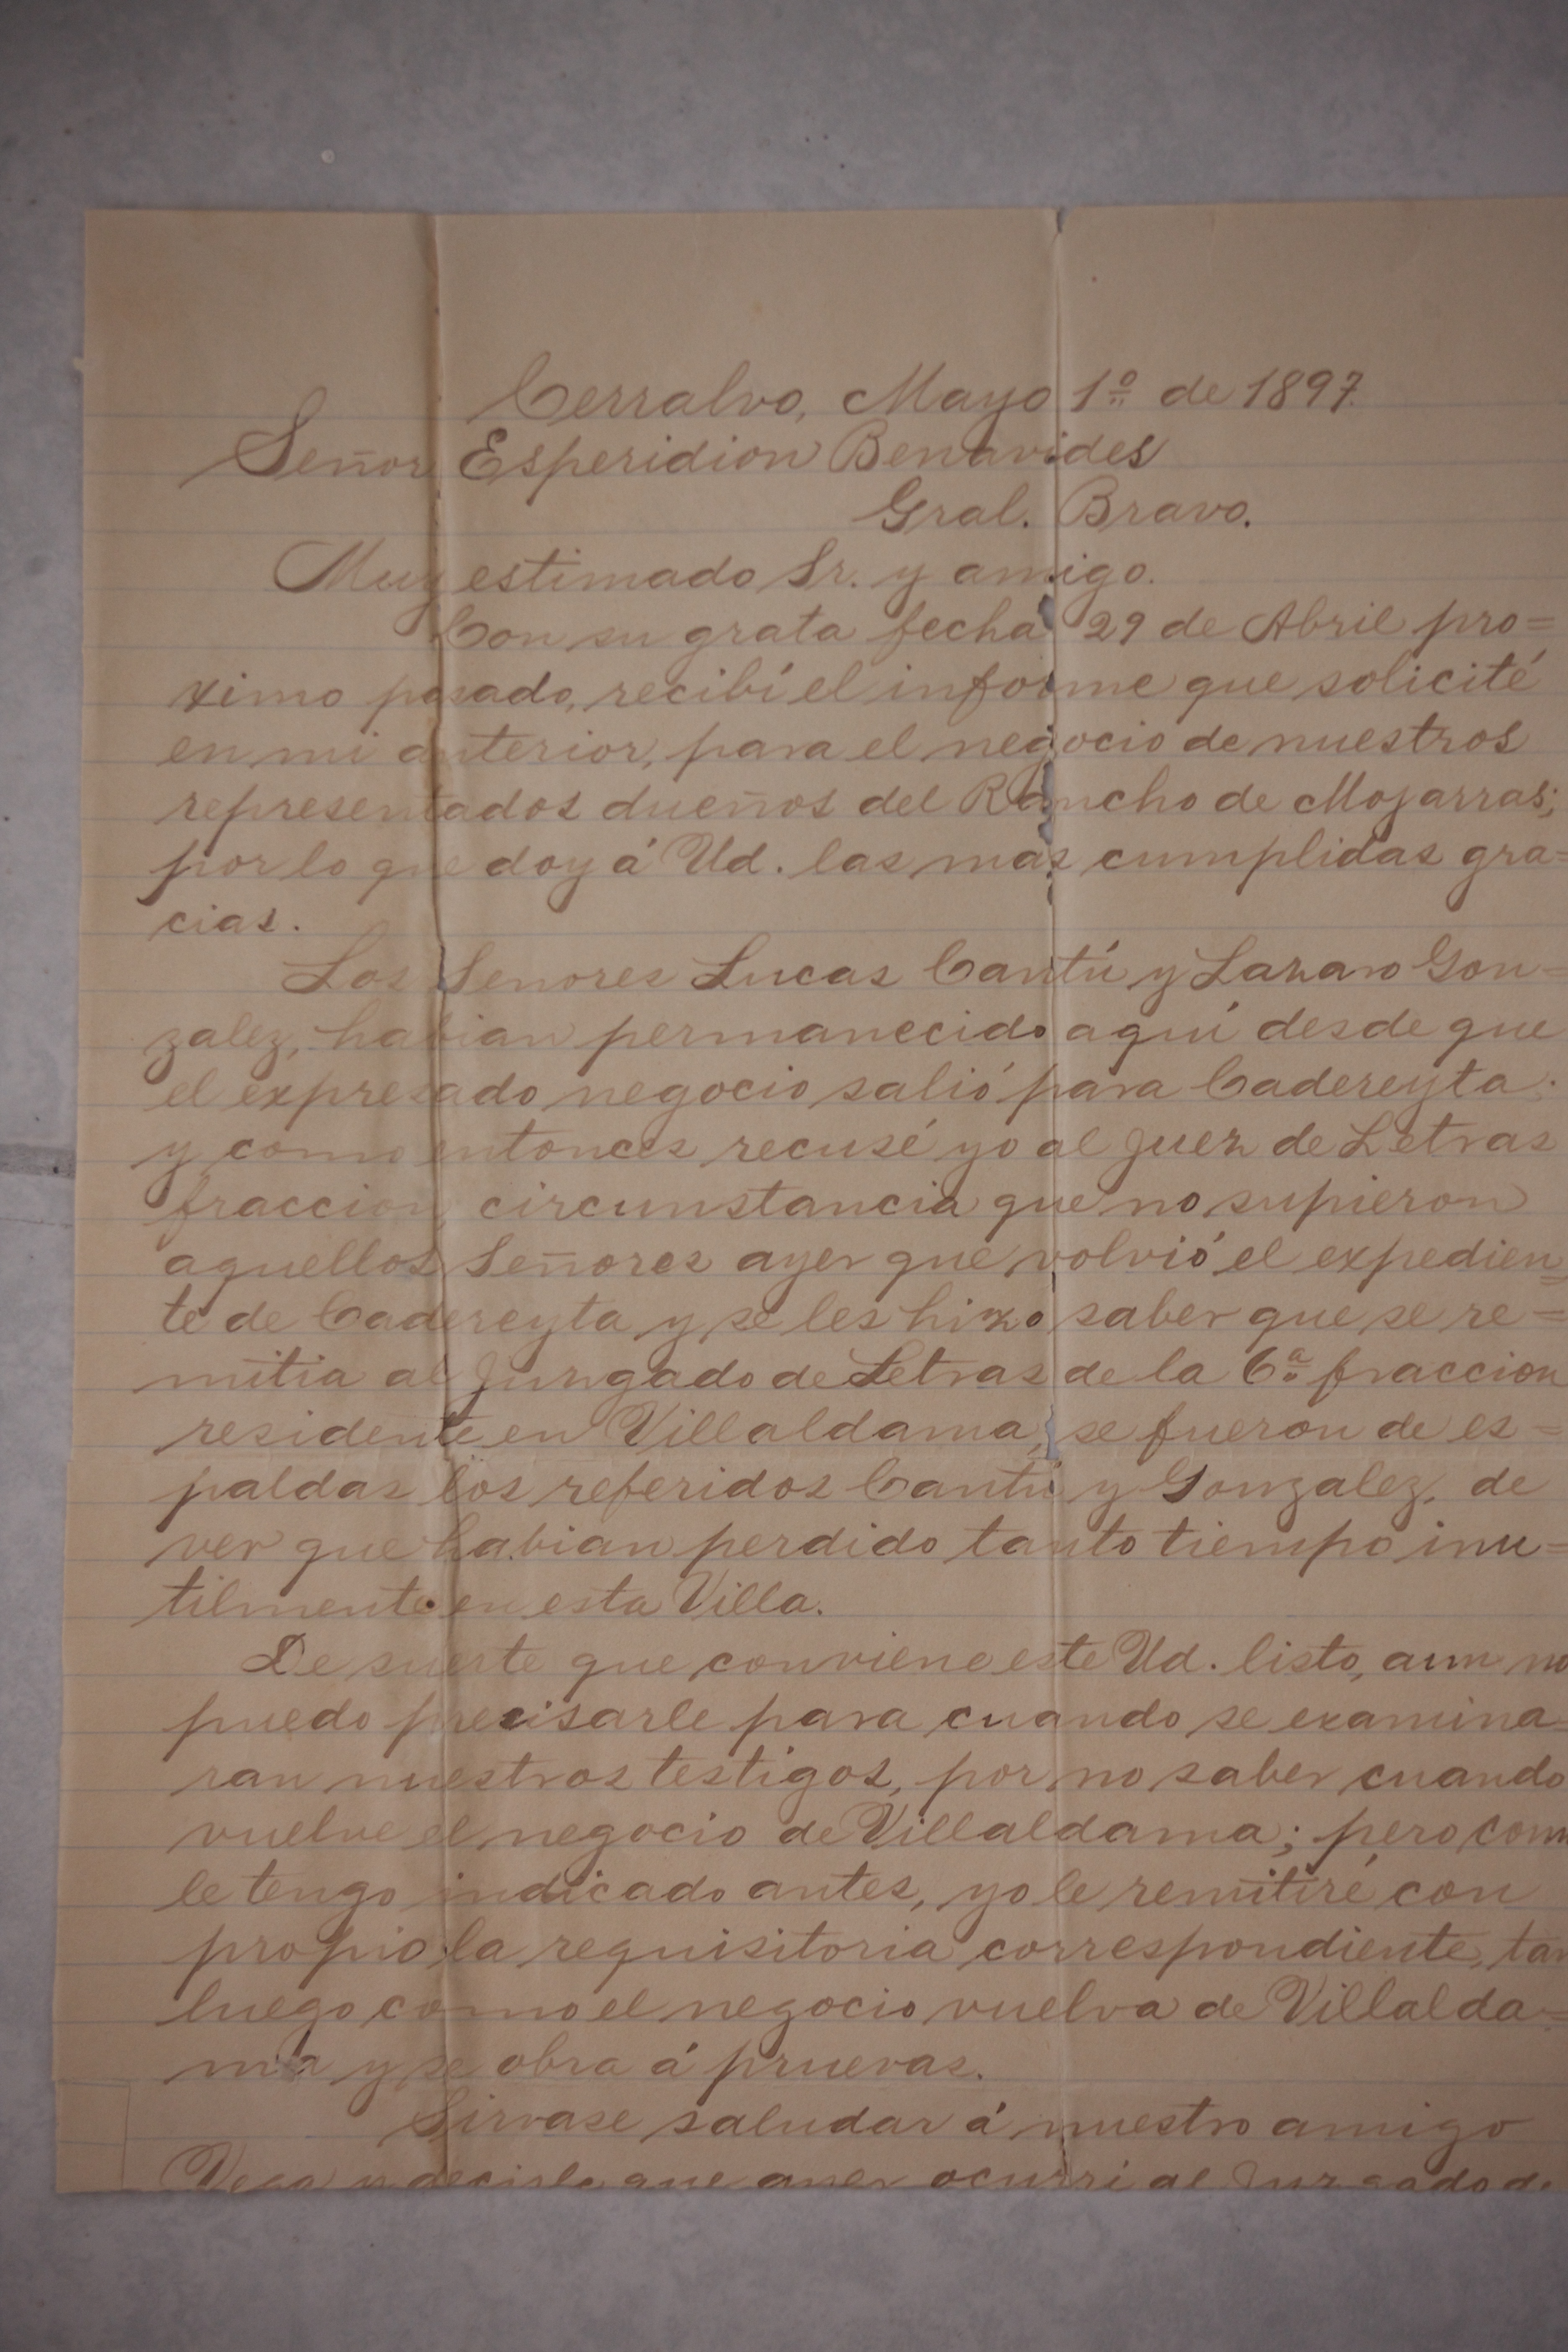 Cerralvo, Mayo 1º de 1897.
Señor Esperidion Benavides
Gral. Bravo.
Muy estimado Sr. y amigo.
Con su grata fecha 29 de Abril pro=
ximo pasado, recibí el informe que solicité
en mi anterior, para el negocio de nuestros
representados dueños del Rancho de Mojarras;
por lo que doy á Ud. las mas cumplidas gra=
cias.
Los Senores Lucas Cantú y Lazaro Gon=
zalez, habian permanecido aquí desde que
el expresado negocio salió para Cadereyta.
y como entonces recusé yo al Juez de Letras
fraccion, circunstancia que no supieron
aquellos Señores ayer que volvió el expedien=
te de Cadereyta y se les hizo saber que se re=
mitia al Juzgado de Letras de la 6ª fraccion
residente en Villaldama, se fueron de es=
paldas los referidos Cantú y Gonzalez, de
ver que habian perdido tanto tiempo inu=
tilmente en esta Villa.
De suerte que conviene este Ud. listo, aun no
puedo precisarle para cuando se examina
ran nuestros testigos, por no saber cuando
vuelve el negocio de Villaldama; pero com
le tengo indicado antes, yo le remitiré con
propio la requisitoria correspondiente, tan
luego como el negocio vuelva de Villalda=
ma y se obra á pruevas.
Sirvase saludar á nuestro amigo
Vega y decirle que ayer ocurri al Juzgado de